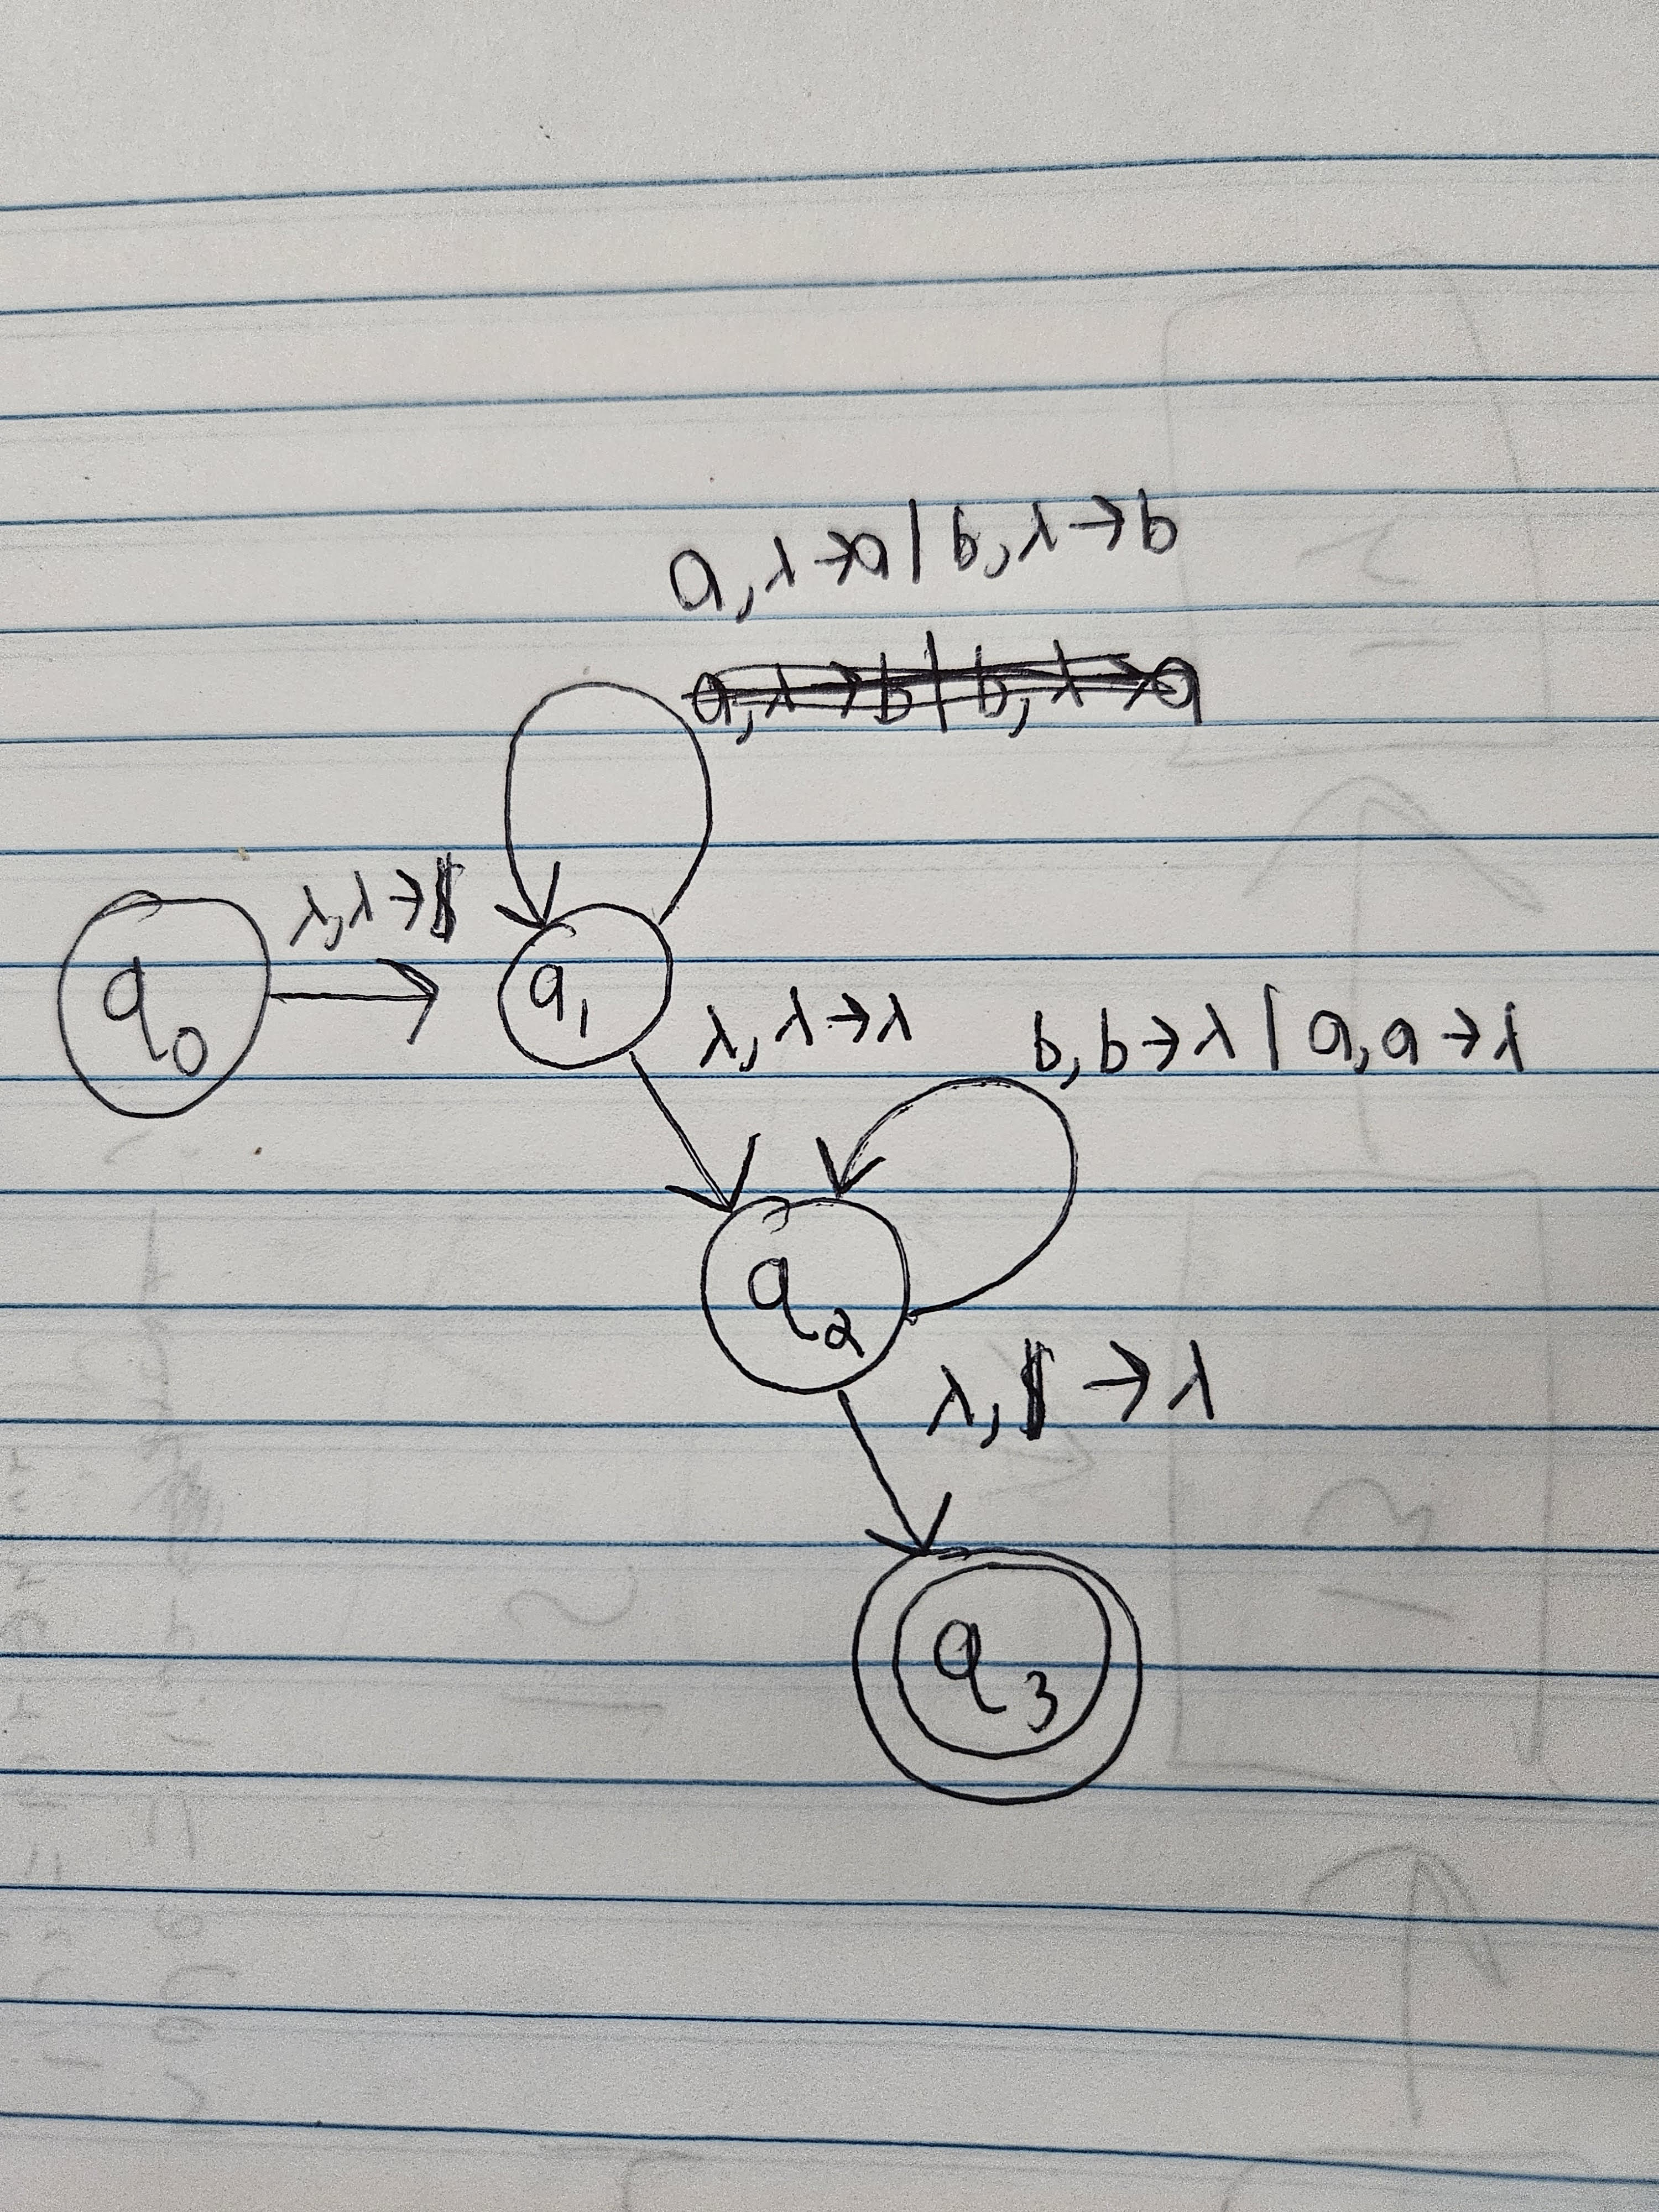 a, λ → a | b, λ → b
a, λ → b | b, λ → a
λ, λ → $
q₀
q₁
λ, λ → λ
b, b → λ | a, a → λ
q₂
λ, $ → λ
q₃